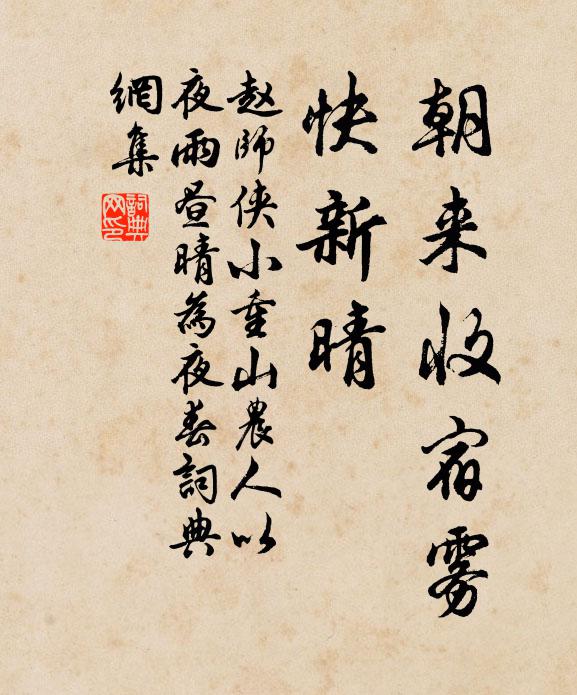 朝来收宿雾
快新晴
赵师侠小重山農人以
夜雨昼晴為夜春詞典
網集
詞典
网印